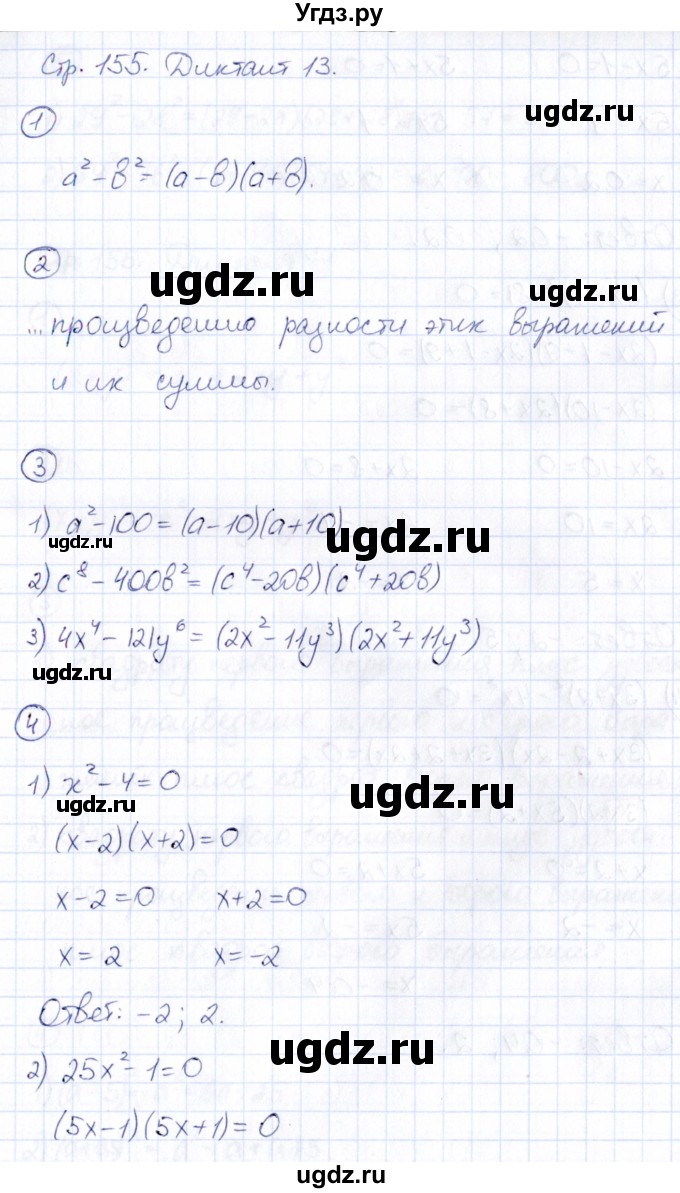 Угдз.ру
Стр. 155. Диктант 13.
1
a² - b² = (a - b)(a + b).
2
ugdz.ru ugdz.ru
...произведению разности этих выражений
и их суммы.
3
1) a² - 100 = (a - 10)(a + 10)
ugdz.ru ugdz.ru
2) c⁸ - 400b² = (c⁴ - 20b)(c⁴ + 20b)
3) 4x⁴ - 121y⁶ = (2x² - 11y³)(2x² + 11y³)
ugdz.ru
4
1) x² - 4 = 0
ugdz.ru ugdz.ru
(x - 2)(x + 2) = 0
x - 2 = 0 x + 2 = 0
x = 2 x = -2
Ответ: -2; 2.
ugdz.ru
2) 25x² - 1 = 0
(5x - 1)(5x + 1) = 0
ugdz.ru